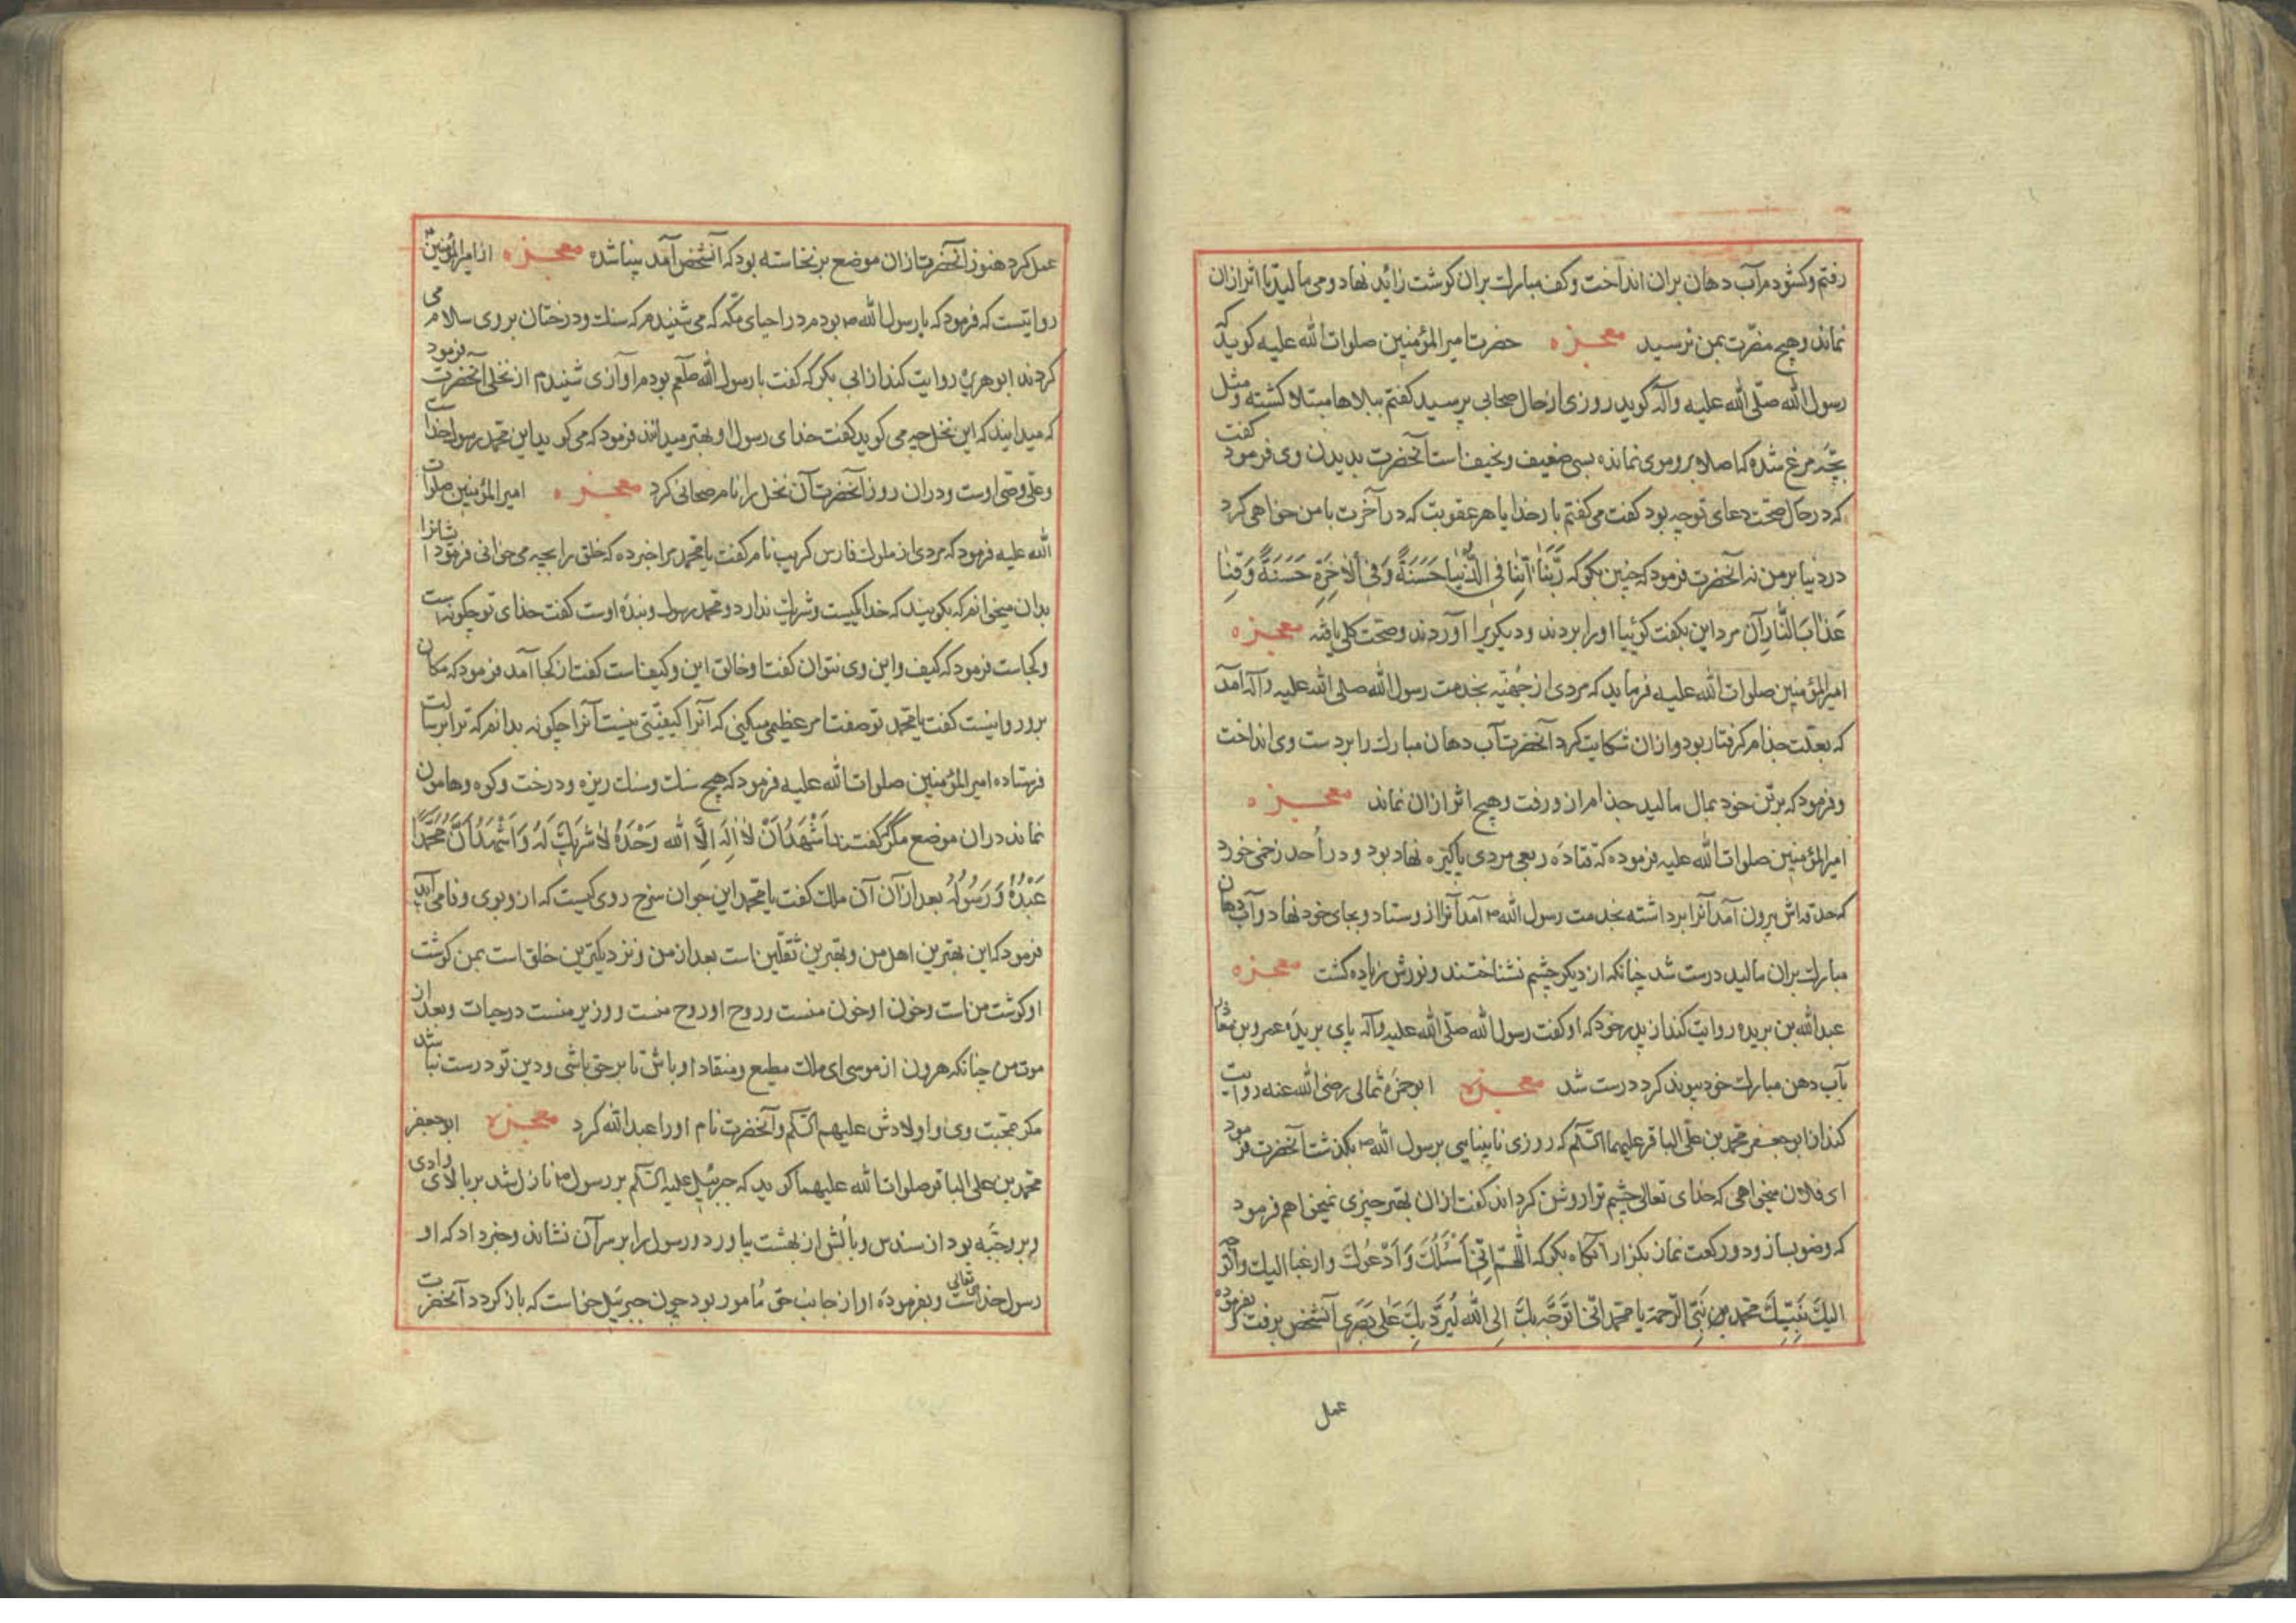 رفتم و کشودم آب دهان بران انداخت و کف مبارک بران کوشت زائید نهاد و می مالید تا اثر ازان
نماند و هیچ مضرت بمن نرسید معجزه حضرت امیر المؤمنین صلوات الله علیه کوید که
رسول الله صلّی الله علیه وآله کوید روزی از حال صحابی پرسید کفتم ببلاها مبتلا کشته و مثل
بچّه مرغ شده که اصلا برو موی نمانده بسی ضعیف و نحیف است آنحضرت بدیدن وی فرمود کفت
که در حال صحت دعای تو چه بود کفت می کفتم بار خدایا هر عقوبت که در آخرت با من خواهی کرد
در دنیا بر من نه آنحضرت فرمود که چنین بکو که رَبَّنَا آتِنَا فِی الدُّنْیَا حَسَنَةً وَفِی الْآخِرَةِ حَسَنَةً وَقِنَا
عَذَابَ النَّارِ آن مرد این بکفت کوئیا او را بردند و دیکریرا آوردند و صحّت کلی یافته معجزه
امیر المؤمنین صلوات الله علیه فرماید که مردی از جُهَیْنه بخدمت رسول الله صلی الله علیه وآله آمد
که بعلّت جذام کرفتار بود و ازان شکایت کرد آنحضرت آب دهان مبارک را بر دست وی انداخت
و فرمود که بر تن خود بمال مالید جذام از و رفت و هیچ اثر ازان نماند معجزه
امیر المؤمنین صلوات الله علیه فرموده که قتاده ربعی مردی پاکیزه نهاد بود و در اُحد زخمی خورد
که حدقه اش بیرون آمد آنرا برداشته بخدمت رسول الله ص آمد آنرا از و ستاد و بجای خود نهاد و آب دهان
مبارک بران مالید درست شد چنانکه از دیکر چشم نشناختند و نورش زیاده کشت معجزه
عبد الله بن بریده روایت کند از پدر خود که او کفت رسول الله صلّی الله علیه وآله پای بریدهٔ عمرو بن معاذ
بآب دهن مبارک خود پیوند کرد درست شد معجزه ابو حمزه ثمالی رضی الله عنه روایت
کند از ابو جعفر محمد بن علّی الباقر علیهما السّلم که روزی نابینایی بر رسول الله ص بکذشت آنحضرت فرمود
ای فلان میخواهی که خدای تعالی چشم ترا روشن کرداند کفت ازان بهتر چیزی نمیخواهم فرمود
که وضو بساز و دو رکعت نماز بکزار آنکاه بکو که اللّهمّ اِنّی اَسْئَلُکَ وَ اَدْعُوکَ وارغبا الیک واتوجه
الیکَ بِنَبِیِّکَ محمد نَبِیِّ الرّحمة یا محمد انّی اَتَوَجَّه بِکَ اِلی الله لِیَرُدَّ بِکَ عَلی بَصَرِی آنشخص برفت و بفرموده
عمل
عمل کرد هنوز آنحضرت ازان موضع بر نخاسته بود که آنشخص آمد بینا شده معجزه از امیر المؤمنین
روایتست که فرمود که با رسول الله ص بودم در احیای مکّه که می شنیدم که سنک و درختان بر وی سلام می
کردند ابو هریره روایت کند از ابی بکر که کفت با رسول الله صلعم بودم آوازی شنیدم از نخلی آنحضرت فرمود
که میدانید که این نخل چه می کوید کفت خدای و رسول او بهتر میدانند فرمود که می کوید این محمد رسول خداست
و علی وصی اوست و دران روز آنحضرت آن نخل را نام صحانی کرد معجزه امیر المؤمنین صلوات
الله علیه فرمود که مردی از ملوک فارس کریب نام کفت یا محمد مرا خبر ده که خلق را بچه می خوانی فرمود ایشانرا
بدان میخوانم که بکویند که خدا یکیست و شریک ندارد و محمد رسول و بندهٔ اوست کفت خدای تو چکونه است
و کجاست فرمود که کیف و این وی نتوان کفت او خالق این و کیف است کفت از کجا آمد فرمود که مکان
برو روا نیست کفت یا محمد تو صفت امر عظیمی میکنی که آنرا کیفیّتی نیست آنرا چکونه بدانم که ترا برسالت
فرستاده امیر المؤمنین صلوات الله علیه فرمود که هیچ سنک و سنک ریزه و درخت و کوه و هامون
نماند دران موضع مکر کفتند اَشْهَدُ اَنْ لا اِلَهَ اِلّا الله وَحْدَهُ لا شَرِیکَ لَهُ وَ اَشْهَدُ اَنَّ مُحَمَّدًا
عَبْدُهُ وَ رَسُولُهُ بعد ازان آن ملک کفت یا محمد این جوان سرخ روی کیست که ازو بوی وفا می آید
فرمود که این بهترین اهل من و بهترین ثقلین است بعد از من و نزدیکترین خلق است بمن کوشت
او کوشت من است و خون او خون منست و روح او روح منست و وزیر منست در حیات و بعد از
موت من چنانکه هرون از موسی ای ملک مطیع و منقاد او باش تا بر حق باشی و دین تو درست نباشد
مکر بمحبت وی و اولادش علیهم السّلم و آنحضرت نام او را عبد الله کرد معجزه ابو جعفر
محمد بن علی الباقر صلوات الله علیهما کوید که جبرئیل علیه السّلم بر رسول ص نازل شد بر بالای وادی
و برو جبّه بود از سندس و بالش از بهشت بیاورد و رسول را بر سر آن نشاند و خبر داد که او
رسول خدای تعالی است و بفرمودهٔ او از جانب حق مأمور بود چون جبرئیل خواست که باز کردد آنحضرت